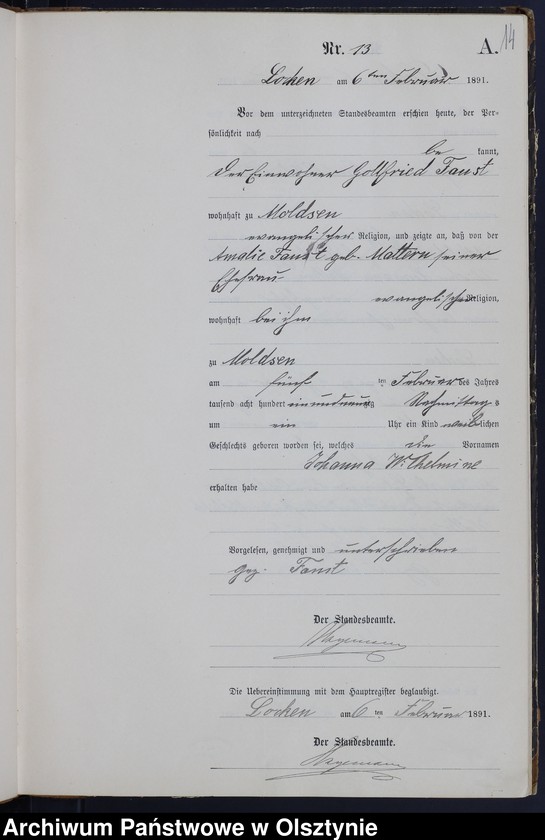 14
Nr. 13 A.
Locken am 6ten Februar 1891.
Vor dem unterzeichneten Standesbeamten erschien heute, der Per-
sönlichkeit nach
be kannt,
der Einwohner Gottfried Faust
wohnhaft zu Moldsen
evangelischer Religion, und zeigte an, daß von der
Amalie Faust geb. Mattern seiner
Ehefrau
evangelischer Religion,
wohnhaft bei ihm
zu Moldsen
am fünf ten Februar des Jahres
tausend acht hundert einundneunzig Nachmittags
um ein Uhr ein Kind weiblichen
Geschlechts geboren worden sei, welches die Vornamen
Johanna Wilhelmine
erhalten habe
Vorgelesen, genehmigt und unterschrieben
gez. Faust
Der Standesbeamte.
Die Uebereinstimmung mit dem Hauptregister beglaubigt.
Locken am 6 ten Februar 1891.
Der Standesbeamte.
Archiwum Państwowe w Olsztynie